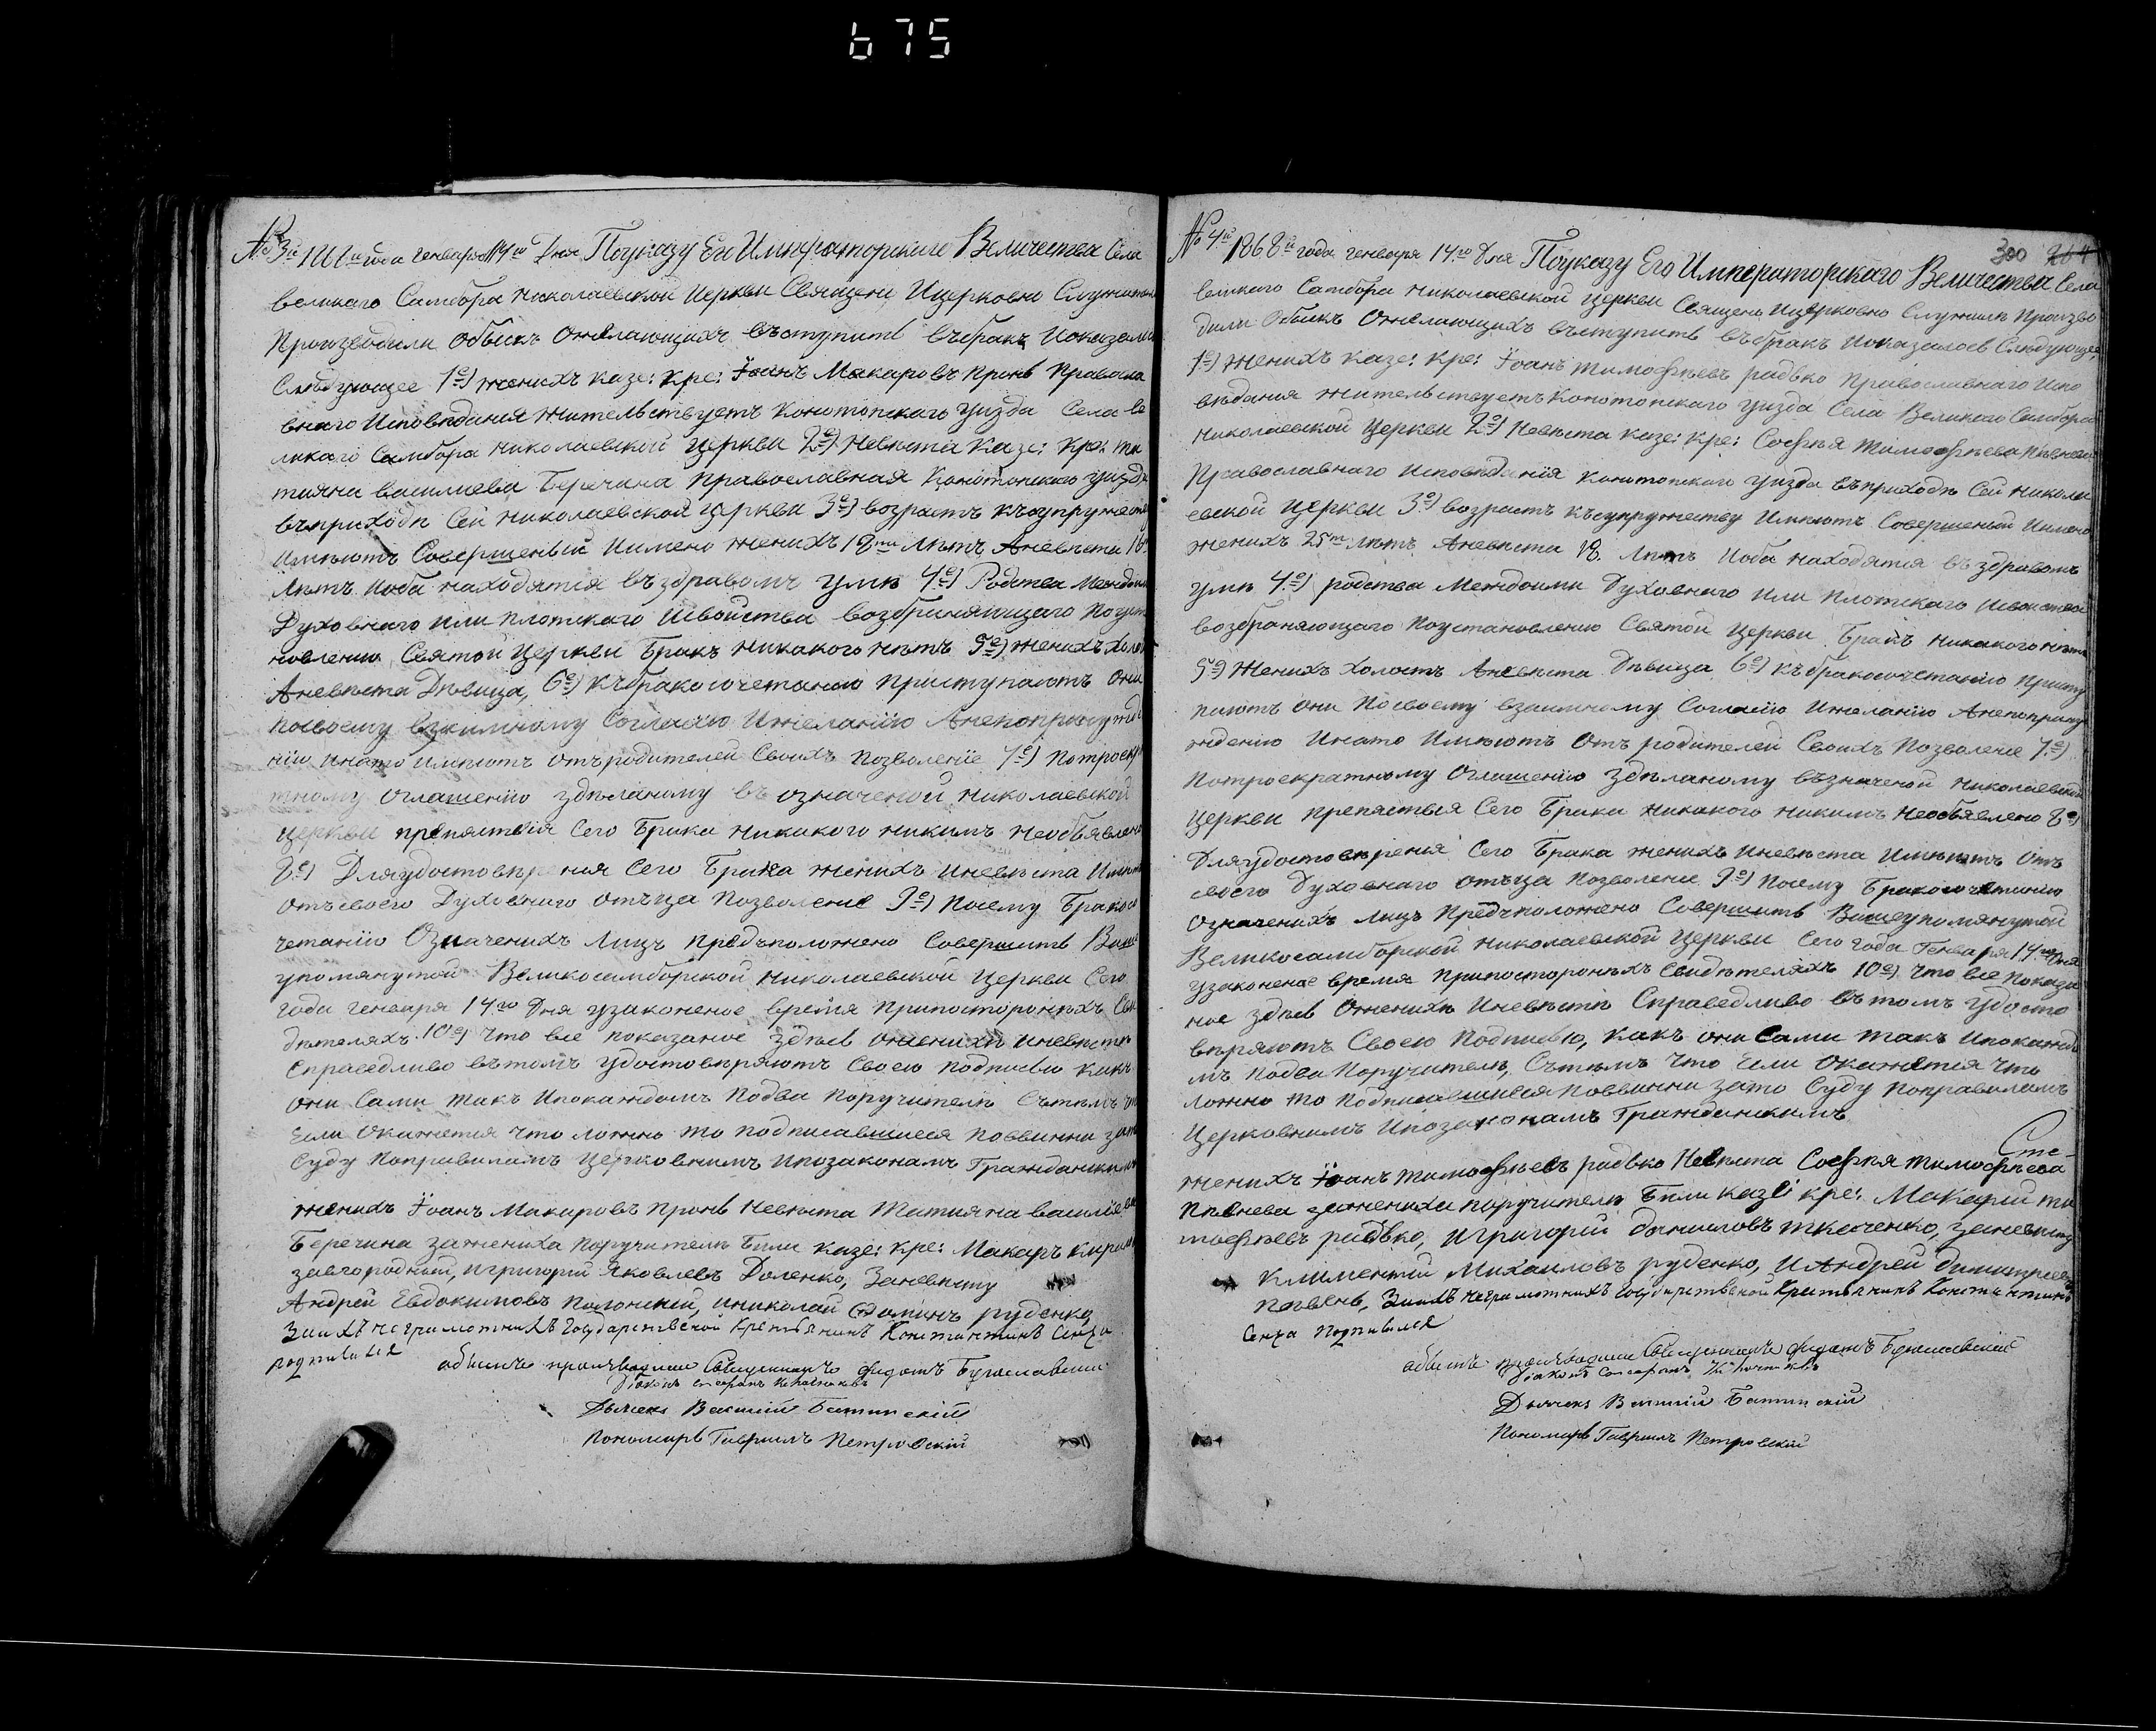 675
№ 3й года генваря 14го Дня Поуказу Его Императорскаго Величества Села
великаго Самбора николаевской Церкви Священи Ицерковно Служители
Производили обыскъ Ожелающихъ въступить въбракъ Иоказалос
Слѣдующее 1е) женихъ казе: кре: Їоанъ Макаровъ Пронь Правосла
внаго Исповѣдания жительствуетъ Конотопскаго уизда Села ве
ликаго Самбора николаевской Церкви 2е) невѣста Казе: кре: та
тияна василиева Беречина православная Конотопскаго уизда
въприходѣ Сей николаевской церкви 3е) возрастъ къ супружеств
Имѣютъ Совершеный Иимено женихъ 18ти лѣтъ Аневѣста 16
лѣтъ Иоба находятся въздравомъ умѣ 4е) Родства Междоими
Духовнаго или плотскаго Исвойства возбраняющаго поуста
новлению Святой Церкви Бракъ никакого нѣтъ 5е) женихъ холос
Аневѣста Дѣвица, 6е) къбракосочетанию приступаютъ они
посвоему взаимному Согласию Ижеланию Анепопринужде
нию инато имѣютъ отъродителей Своихъ позволение 7е) потроекра
тному оглашению здѣланому въ означеной николаевской
Церкви препятствия Сего Брака никакого никимъ необявлено
8е) Для удостовѣрения Сего Брака женихъ иневѣста Имѣют
отъсвоего Духовнаго отъца позволение 9е) поему Бракосо
четанию Означенихъ лицъ предъположено Совершить Више
упомянутой Великосамборской николаевской Церкви Сего
года генваря 14го Дня узаконеное время припостороныхъ Сви
дѣтеляхъ. 10е) что все показаное здѣсь ожениху иневѣстѣ
Справедливо вътомъ удостовѣряютъ Своею подписью какъ
они Сами такъ ипокаждомъ подва поручителя Сътѣмъ что
Если окажется что ложно то подписавшиеся повинни зато
Суду поправиламъ Церковнимъ ипозаконамъ Гражданскимъ
женихъ Їоанъ Макаровъ пронь невѣста Татияна василиева
Беречина зажениха поручители Били казе: кре: Макаръ кирил
завгородный, игригорий Яковлевъ Доленко, Заневѣсту
Андрей Евдокимовъ полонский, иниколай Фоминъ руденко,
Заихъ неграмотнихъ Государственой Крестьянинъ Константинъ Сенча
подписался
обыскъ производили Священникъ Федотъ Бугославский
Дьячокъ Василий Батинский
Пономарь Гавриилъ Петровский
300 264
№ 4й 1868й года генваря 14го Дня Поуказу Его Императорскаго Величества Села
великаго Самбора николаевской Церкви Священо Ицерковно Служили Произво
дили Обыскъ Ожелающихъ въступить въбракъ Иоказалось Слѣдующее
1е) женихъ казе: кре: Їоанъ тимофѣевъ радько православнаго Испо
вѣдания жительствуетъ Конотопскаго уизда Села Великаго Самбора
николаевской Церкви 2е) Невѣста казе: кре: Софѣя Тимофѣева Пѣвнева
Православнаго исповѣдания конотопскаго уизда въприходѣ Сей никола
евской Церкви 3е) возрастъ късупружеству Имѣютъ Совершеный Иимено
женихъ 25ть лѣтъ Аневѣста 18. лѣтъ Иоба находятся въздравомъ
умѣ 4е) родства Междоими Духовнаго или плотскаго Исвойства
возбраняющаго поустановлению Святой Церкви Бракъ никакого нѣтъ
5е) Женихъ холостъ Аневѣста Дѣвица 6е) къбракосочетанию присту
паютъ они посвоему взаимному Согласию Ижеланию Анепоприну
ждению Инато Имѣютъ Отъ родителей Своихъ позволение 7е)
потроекратному оглашению здѣланому възначеной николаевской
Церкви препятствия Сего Брака никакого никимъ необявлено 8е)
Для удостовѣрения Сего Брака женихъ иневѣста Имѣютъ Отъ
своего Духовнаго отъца позволение 9е) поему Бракосочетанию
означенихъ лицъ предъположено Совершить Вишеупомянутой
Великосамборской николаевской Церкви Сего года Генваря 14го Дня
узаконеное время припостороныхъ Свидѣтеляхъ 10е) что все показа
ное здѣсь Ожениху Иневѣстѣ Справедливо вътомъ удосто
вѣряютъ Своею подписью, какъ они Сами такъ ипокаждо
мъ подва поручителя, Сътѣмъ что Если окажется что
ложно то подписавшиеся повинни зато Суду поправиламъ
Церковнимъ ипозаконамъ Гражданскимъ
женихъ Їоанъ тимофѣевъ радько Невѣста Софѣя тимофѣева
Пѣвнева зажениха поручители Били казе: кре: Макарий ти
мофѣевъ радько, игригорий даниловъ ткаченко, заневѣсту
Климентий Михаиловъ руденко, иАндрей димитриев
Пѣвень, Заихъ неграмотнихъ Государственой Крестьянинъ Константинъ
Сенча подписался
обыскъ производили Священникъ Федотъ Бугославский
Дьячокъ Василий Батинский
Пономарь Гавриилъ Петровский